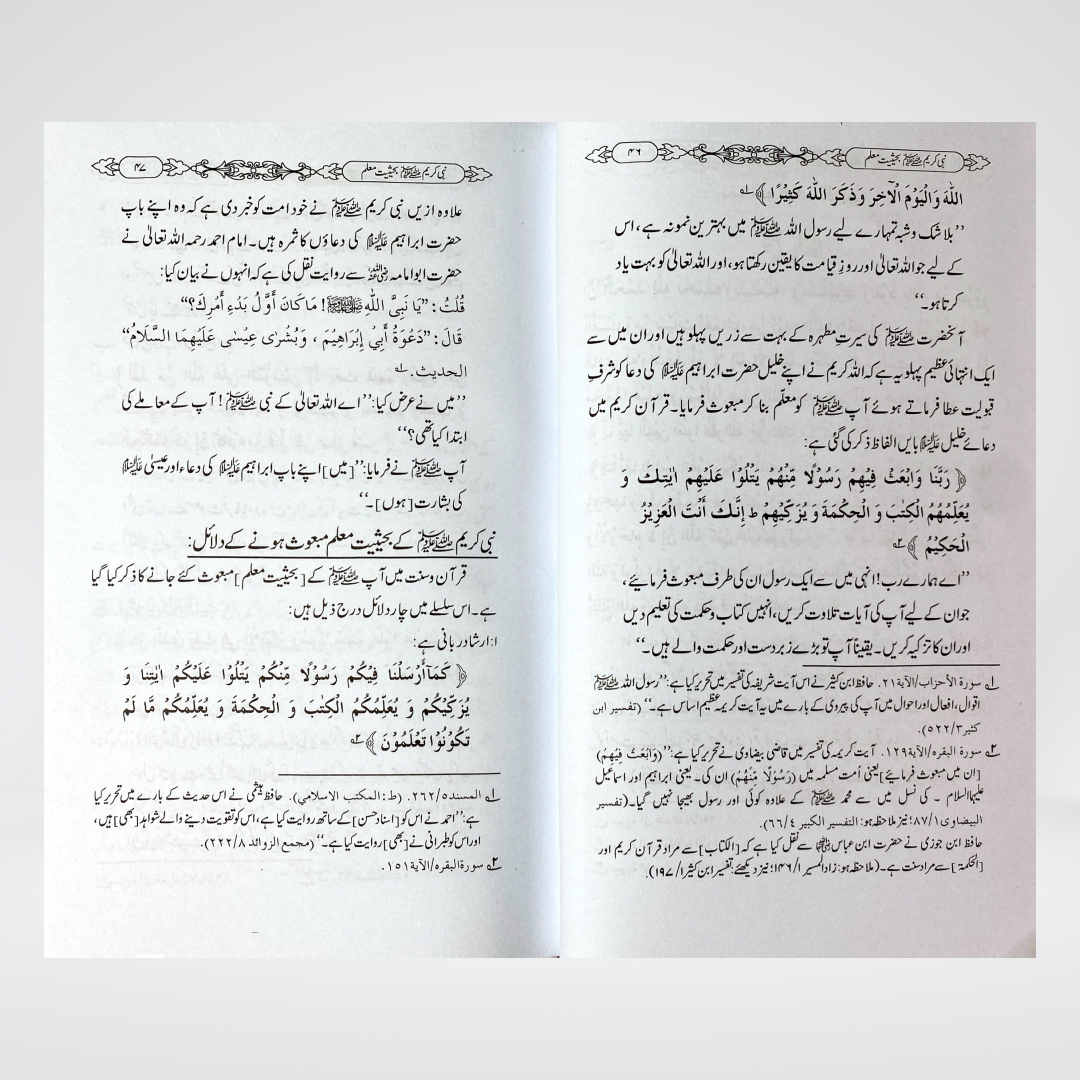 نبی کریم ﷺ بحیثیت معلم
۴۶
اللّٰهَ وَالْيَوْمَ الْآخِرَ وَذَكَرَ اللّٰهَ كَثِيْرًا ﴾ ۱؎
’’بلا شک و شبہ تمہارے لیے رسول اللہ ﷺ میں بہترین نمونہ ہے، اس
کے لیے جو اللہ تعالیٰ اور روزِ قیامت کا یقین رکھتا ہو، اور اللہ تعالیٰ کو بہت یاد
کرتا ہو۔‘‘
آنحضرت ﷺ کی سیرتِ مطہرہ کے بہت سے زریں پہلو ہیں اور ان میں سے
ایک انتہائی عظیم پہلو یہ ہے کہ اللہ کریم نے اپنے خلیل حضرت ابراہیم علیہ السلام کی دعا کو شرفِ
قبولیت عطا فرماتے ہوئے آپ ﷺ کو معلّم بنا کر مبعوث فرمایا۔ قرآن کریم میں
دعائے خلیل علیہ السلام بایں الفاظ ذکر کی گئی ہے:
﴿ رَبَّنَا وَابْعَثْ فِيْهِمْ رَسُوْلًا مِّنْهُمْ يَتْلُوْا عَلَيْهِمْ اٰيٰتِكَ وَ
يُعَلِّمُهُمُ الْكِتٰبَ وَ الْحِكْمَةَ وَ يُزَكِّيْهِمْ ط اِنَّكَ أَنْتَ الْعَزِيْزُ
الْحَكِيْمُ ﴾ ۲؎
’’اے ہمارے رب! انہی میں سے ایک رسول ان کی طرف مبعوث فرمائیے،
جو ان کے لیے آپ کی آیات تلاوت کریں، انہیں کتاب و حکمت کی تعلیم دیں
اور ان کا تزکیہ کریں۔ یقیناً آپ تو بڑے زبردست اور حکمت والے ہیں۔‘‘
۱؎ سورة الأحزاب/الآية ۲۱. حافظ ابن کثیر نے اس آیت شریفہ کی تفسیر میں تحریر کیا ہے: ’’رسول اللہ ﷺ
اقوال، افعال اور احوال میں آپ کی پیروی کے بارے میں یہ آیت کریمہ عظیم اساس ہے۔‘‘ (تفسیر ابن
کثیر ۵۲۲/۳).
۲؎ سورة البقره/الآية ۱۲۹. آیت کریمہ کی تفسیر میں قاضی بیضاوی نے تحریر کیا ہے: ’’(وَابْعَثْ فِيْهِمْ)
[ان میں مبعوث فرمایئے] یعنی اُمت مسلمہ میں (رَسُوْلًا مِّنْهُمْ) ان کی۔ یعنی ابراہیم اور اسماعیل
علیہما السلام ۔ کی نسل میں سے محمد ﷺ کے علاوہ کوئی اور رسول بھیجا نہیں گیا۔ (تفسیر
البيضاوي ۸۷/۱؛ نیز ملاحظہ ہو: التفسير الكبير ٦٦/٤).
حافظ ابن جوزی نے حضرت ابن عباس رضی اللہ عنہما سے نقل کیا ہے کہ [الکتاب] سے مراد قرآن کریم اور
[الحکمۃ] سے مراد سنت ہے۔ (ملاحظہ ہو: زاد المسیر ۱۴۶/۱؛ نیز دیکھئے: تفسیر ابن کثیر ۱۹۷/۱).
نبی کریم ﷺ بحیثیت معلم
۴۷
علاوہ ازیں نبی کریم ﷺ نے خود امت کو خبر دی ہے کہ وہ اپنے باپ
حضرت ابراہیم علیہ السلام کی دعاؤں کا ثمرہ ہیں۔ امام احمد رحمہ اللہ تعالیٰ نے
حضرت ابوامامہ رضی اللہ عنہ سے روایت نقل کی ہے کہ انہوں نے بیان کیا:
قُلْتُ: ’’يَا نَبِيَّ اللّٰهِ ﷺ! مَا كَانَ أَوَّلُ بَدْءِ أَمْرِكَ؟‘‘
قَالَ: ’’دَعْوَةُ أَبِيْ إِبْرَاهِيْمَ ، وَبُشْرٰى عِيْسٰى عَلَيْهِمَا السَّلَامُ‘‘
الحديث. ۱؎
’’میں نے عرض کیا: ’’اے اللہ تعالیٰ کے نبی ﷺ! آپ کے معاملے کی
ابتدا کیا تھی؟‘‘
آپ ﷺ نے فرمایا: ’’[میں] اپنے باپ ابراہیم علیہ السلام کی دعاء اور عیسیٰ علیہ السلام
کی بشارت [ہوں]۔‘‘
نبی کریم ﷺ کے بحیثیت معلم مبعوث ہونے کے دلائل:
قرآن وسنت میں آپ ﷺ کے [بحیثیت معلم] مبعوث کئے جانے کا ذکر کیا گیا
ہے۔ اس سلسلے میں چار دلائل درج ذیل ہیں:
۱: ارشاد ربانی ہے:
﴿ كَمَآ أَرْسَلْنَا فِيْكُمْ رَسُوْلًا مِّنْكُمْ يَتْلُوْا عَلَيْكُمْ اٰيٰتِنَا وَ
يُزَكِّيْكُمْ وَ يُعَلِّمُكُمُ الْكِتٰبَ وَ الْحِكْمَةَ وَ يُعَلِّمُكُمْ مَّا لَمْ
تَكُوْنُوْا تَعْلَمُوْنَ ﴾ ۲؎
۱؎ المسند ۲٦۲/٥. (ط: المكتب الاسلامي). حافظ ہیثمی نے اس حدیث کے بارے میں تحریر کیا
ہے: ’’احمد نے اس کو [اسناد حسن] کے ساتھ روایت کیا ہے، اس کو تقویت دینے والے شواہد [بھی] ہیں،
اور اس کو طبرانی نے [بھی] روایت کیا ہے۔‘‘ (مجمع الزوائد ۲۲۲/۸).
۲؎ سورة البقره/الآية ۱۵۱.